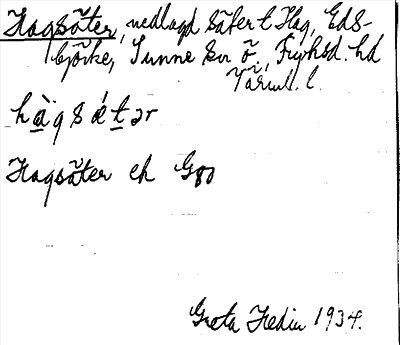 Hagsäter, nedlagd säter t Hag, Eds-
björke, Sunne sn ö. Fryksd. hd
Värml. l.
hàgsǽtər
Hagsäter ek G80
Greta Hedin 1934.